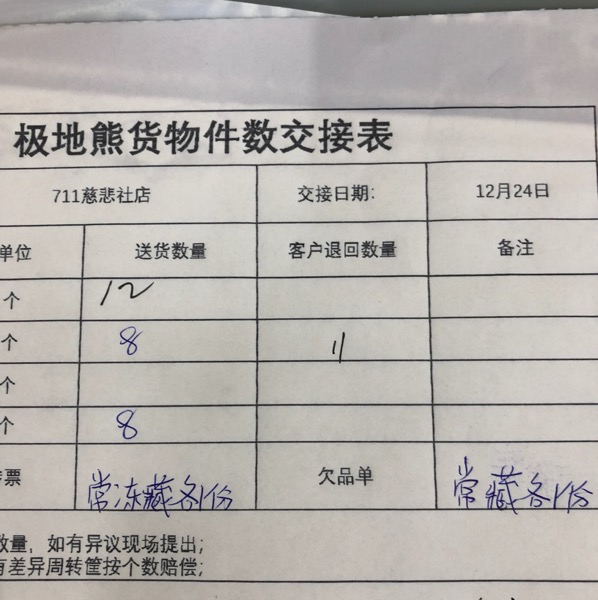 极地熊货物件数交接表
711慈悲社店 交接日期: 12月24日
单位 送货数量 客户退回数量 备注
个 12
个 8 11
个
个 8
票 常冻藏各1份 欠品单 常藏各1份
数量，如有异议现场提出;
有差异周转筐按个数赔偿;